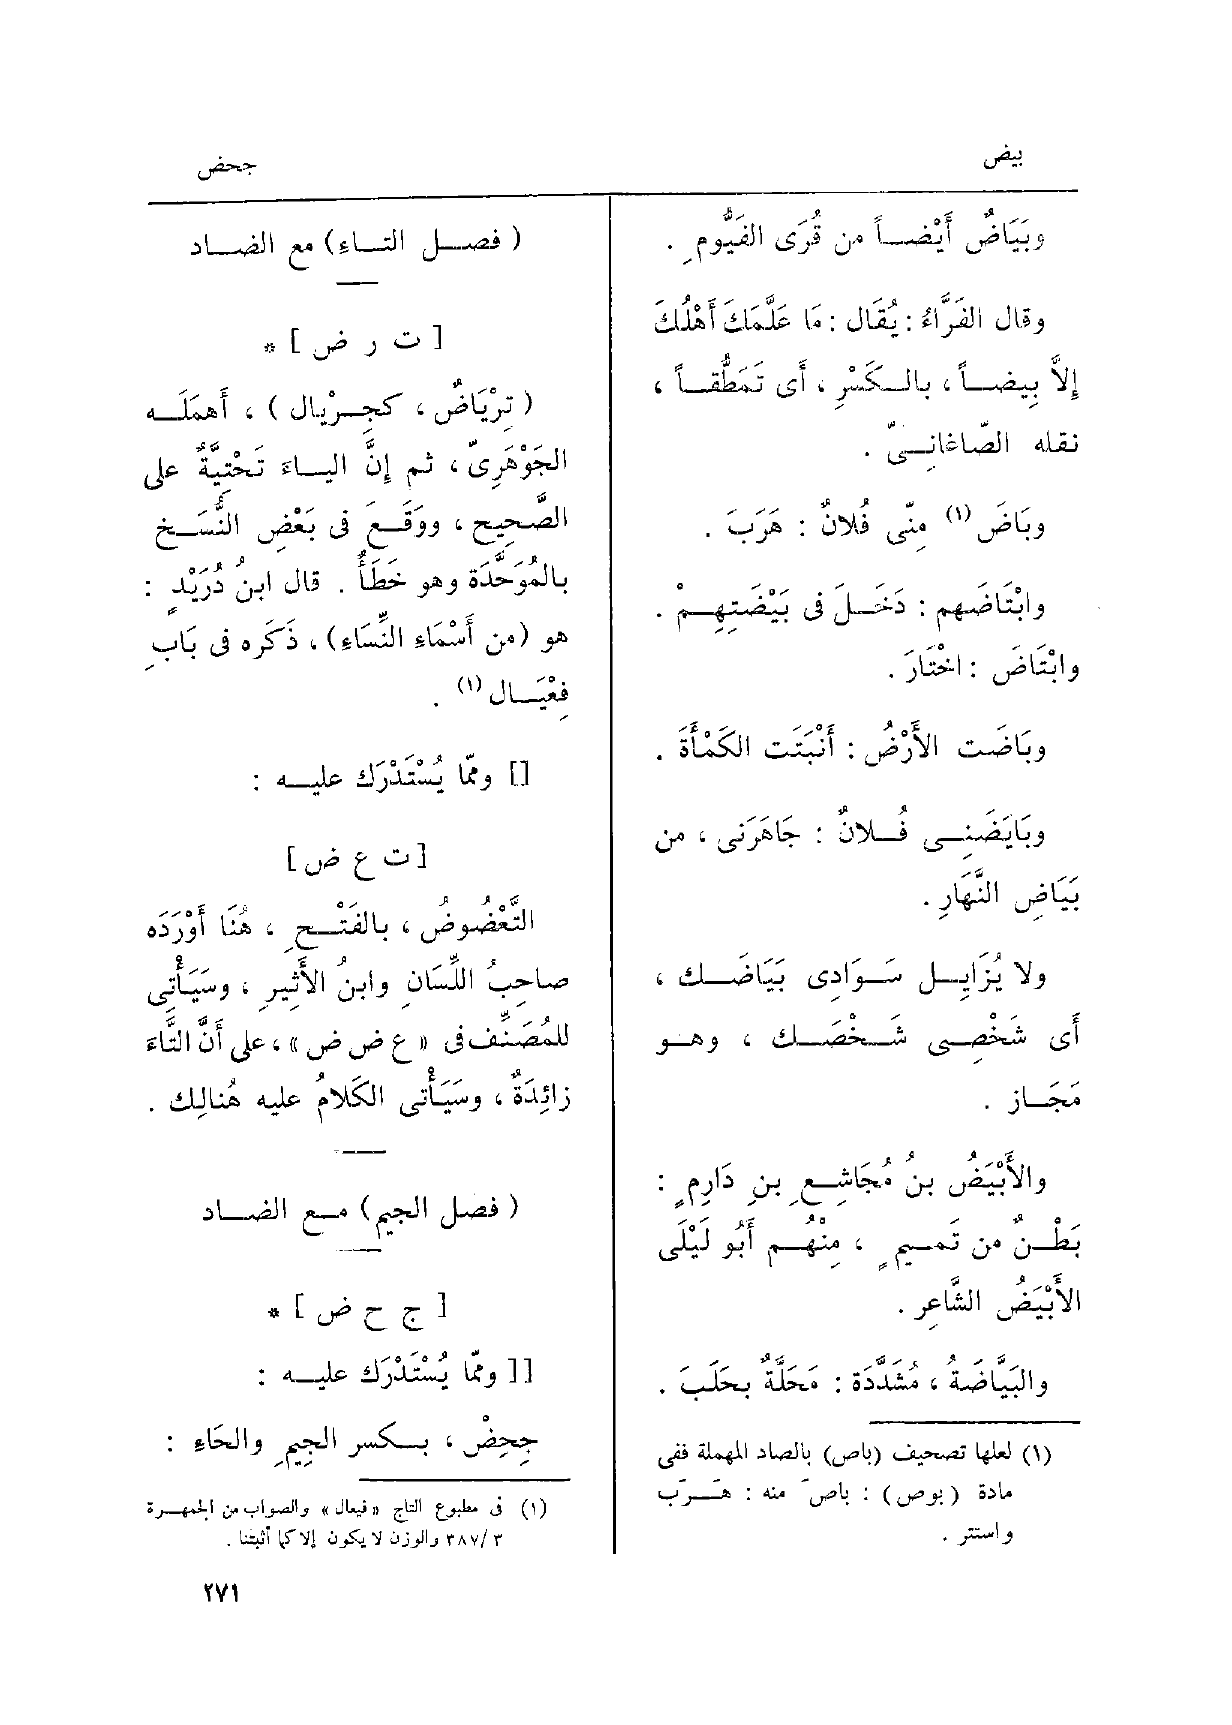 بيض
جحض
وبَيَاضٌ أَيْضــاً من قُرَى الفَيُّومِ .
وقال الفَرَّاءُ : يُقَال : مَا عَلَّمَكَ أَهْلُكَ
إِلاَّ بِيضــاً ، بالـكَسْرِ ، أَى تَمَطُّقــاً ،
نقله الصّاغانِــىّ .
وبَاضَ (١) مِنّى فُلانٌ : هَرَبَ .
وابْتَاضَهم : دَخَــلَ فى بَيْضَتِهِــمْ .
وابْتَاضَ : اخْتَارَ .
وبَاضَت الأَرْضُ : أَنْبَتَت الكَمْأَةَ .
وبَايَضَنِــى فُــلانٌ : جَاهَرَنى ، من
بَيَاضِ النَّهَارِ .
ولا يُزَايِــل سَــوَادِى بَيَاضَــك ،
أَى شَخْصِــى شَــخْصَــك ، وهــو
مَجَــاز .
والأَبْيَضُ بنُ مُجَاشِــعِ بنِ دَارِمٍ :
بَطْــنٌ من تَمــيمٍ ، مِنْهُــم أَبُو لَيْلَى
الأَبْيَضُ الشَّاعِر .
والبَيَّاضَةُ ، مُشَدَّدَة : مَحَلَّةٌ بحَلَبَ .
(١) لعلها تصحيف (باص) بالصاد المهملة ففى
مادة (بوص) : باصَ منه : هَــرَب
واستتر .
( فصــل التــاء) مع الضــاد
[ ت ر ض ] *
( تِرْيَاضٌ ، كجِــرْيال ) ، أَهمَلَــه
الجَوْهَرِىّ ، ثم إِنَّ اليــاءَ تَحْتِيَّةٌ على
الصَّحِيح ، ووَقَــعَ فى بَعْضِ النُّسَــخ
بالمُوَحَّدَة وهو خَطَأٌ . قال ابنُ دُرَيْدٍ :
هو (من أَسْمَاءِ النِّسَاءِ) ، ذَكَره فى بَابِ
فِعْيَــال (١) .
[] وممّا يُسْتَدْرَك عليــه :
[ ت ع ض ]
التَّعْضُوضُ ، بالفَتْــحِ ، هُنَا أَوْرَدَه
صاحِبُ اللِّسَانِ وابنُ الأَثِيرِ ، وسَيَأْتِى
للمُصَنِّف فى « ع ض ض » ، على أَنَّ التَّاءَ
زائِدَةٌ ، وسَيَأْتى الكَلامُ عليه هُنالِك .
( فصل الجيم) مــع الضــاد
[ ج ح ض ] *
[[ وممّا يُسْتَدْرَك عليــه :
جِحِضْ ، بــكسر الجِيمِ والحَاءِ :
(١) فى مطبوع التاج « فيعال » والصواب من الجمهــرة
٣ /٣٨٧ والوزن لا يكون إلا كما أثبتنا .
٢٧١